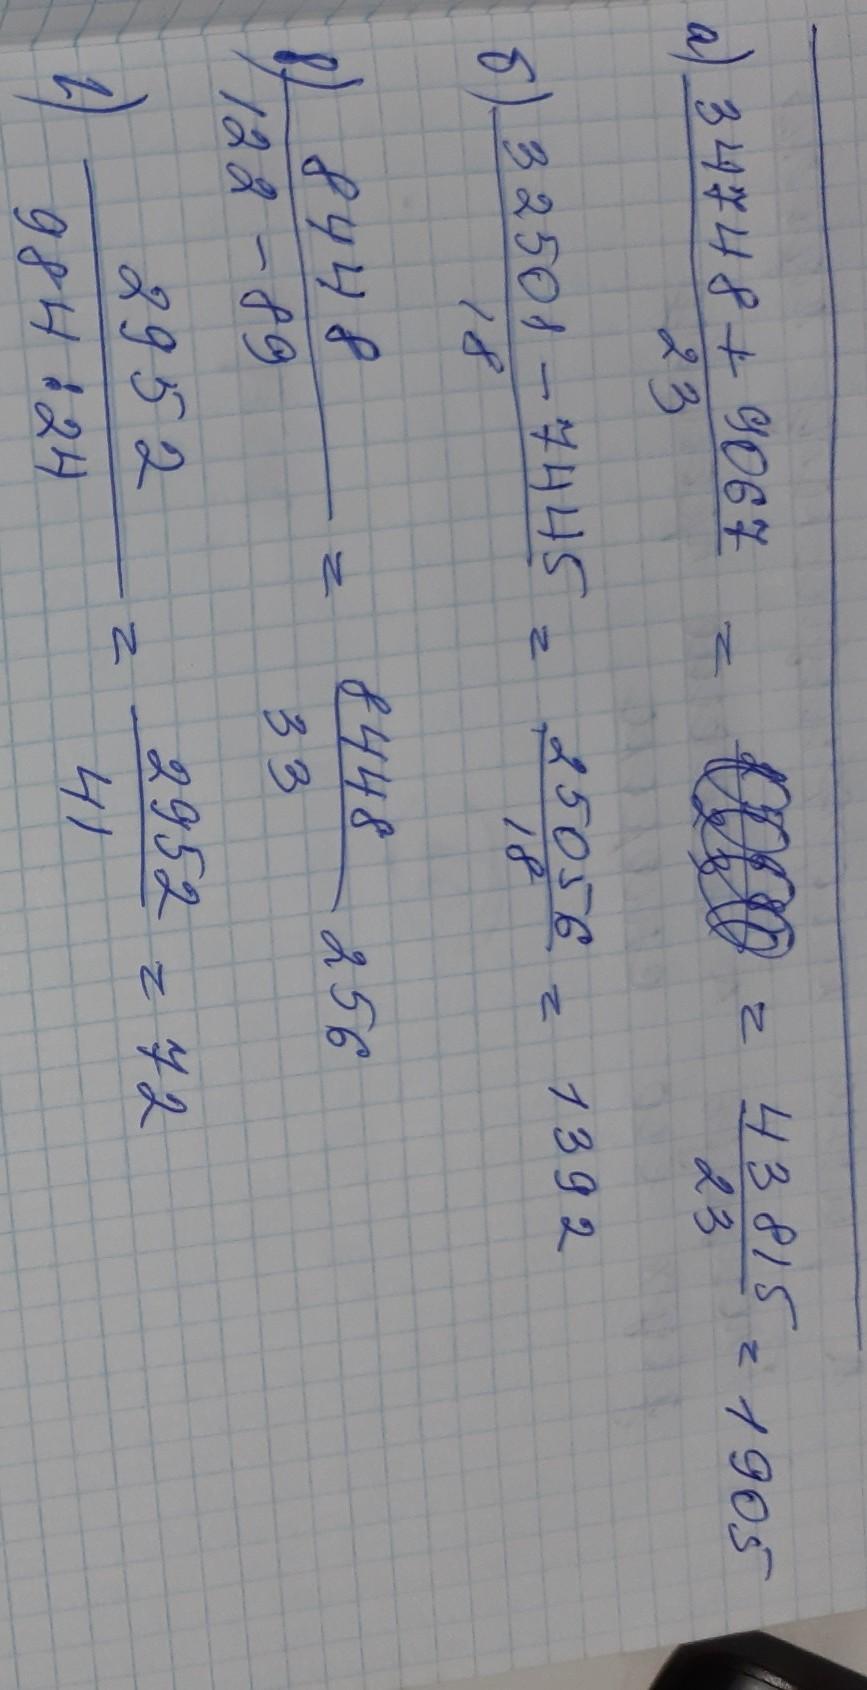 а) 34748 + 9067 / 23 = = 43815 / 23 = 1905
б) 32501 - 7445 / 18 = 25056 / 18 = 1392
в) 8448 / 122 - 89 = 8448 / 33 256
г) 2952 / 984 : 24 = 2952 / 41 = 72